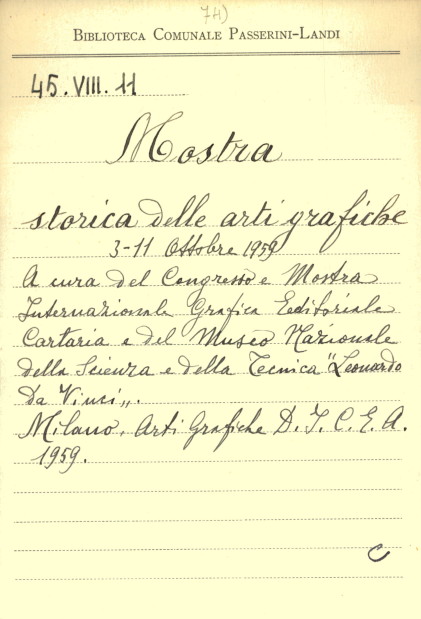 74)
BIBLIOTECA COMUNALE PASSERINI-LANDI
45.VIII.11
Mostra
storica delle arti grafiche
3-11 Ottobre 1959
A cura del Congresso e Mostra
Internazionale Grafica Eeditoriale
Cartaria e del Museo Nazionale
della Scienza e della Tecnica "Leonardo
da Vinci„.
Milano. Arti Grafiche D. I. C. E. A.
1959.
C